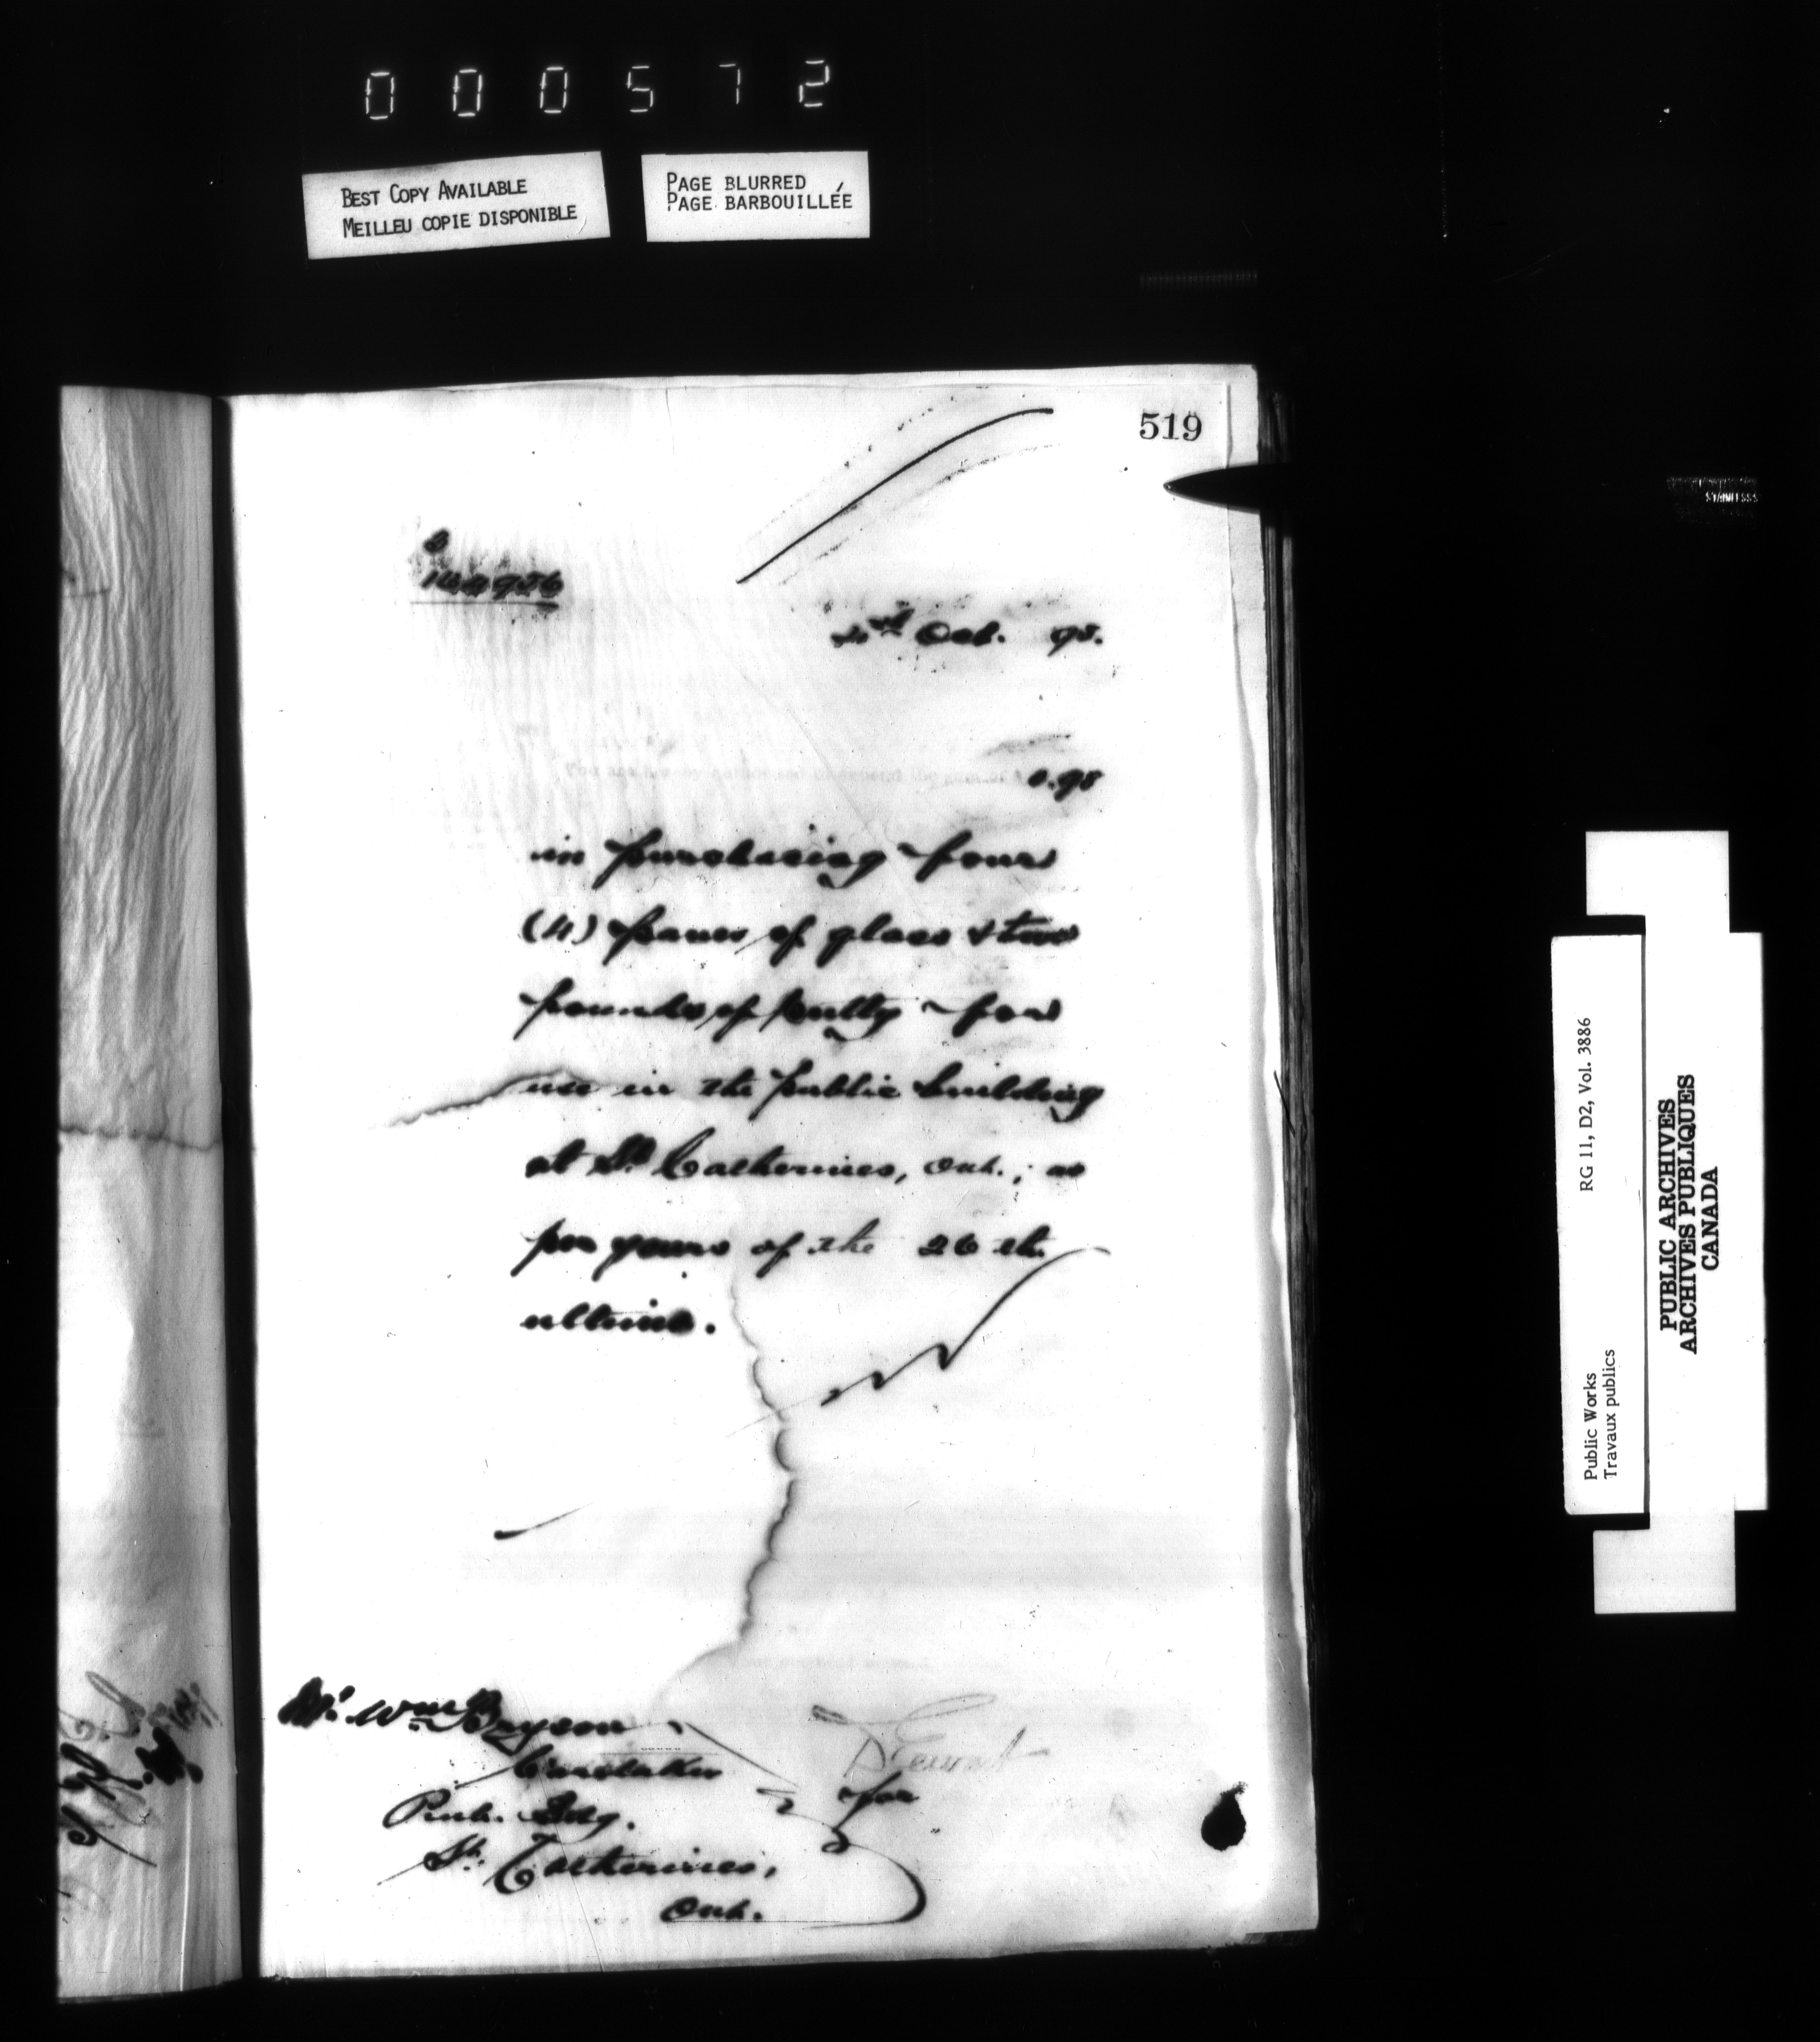 000572
BEST COPY AVAILABLE
MEILLEU COPIE DISPONIBLE
PAGE BLURRED
PAGE BARBOUILLÉE
519
Oct. 95.
You are hereby authorized to expend the sum of $ 0.98
in purchasing four
(4) panes of glass & two
pounds of putty for
use in the public building
at St Catherines, Ont.; as
per yours of the 26th
ultimo.
Mr. Wm Bryson
Caretaker
for
Pub. Bdg.
St. Catherines,
Ont.
STAINLESS
Public Works
Travaux publics
RG 11, D2, Vol. 3886
PUBLIC ARCHIVES
ARCHIVES PUBLIQUES
CANADA